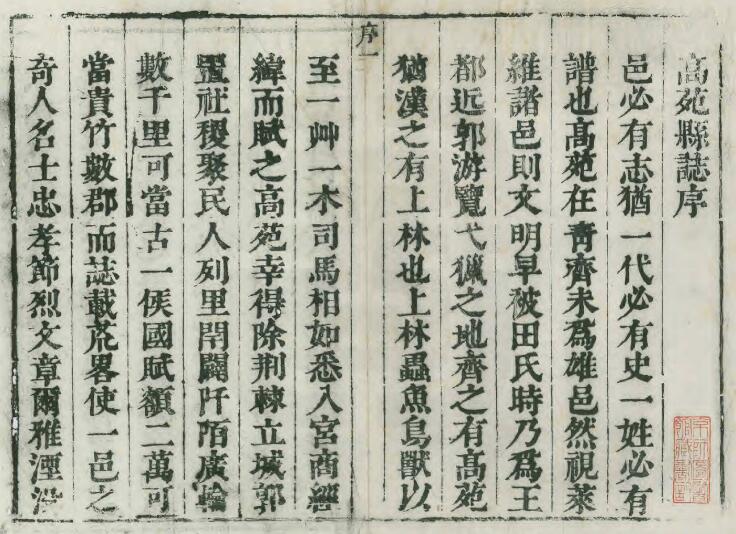 高苑縣誌序
邑必有志猶一代必有史一姓必有
譜也高苑在靑齊未爲雄邑然視萊
維諸邑則文明早被田氏時乃爲王
都近郭游覽弋獵之地齊之有高苑
猶漢之有上林也上林蟲魚鳥獸以
序一
至一艸一木司馬相如悉入宮商經
緯而賦之高苑幸得除荆棘立城郭
置社稷聚民人列里閈闢阡陌廣輪
數千里可當古一侯國賦額二萬可
當貴竹數郡而誌載荒畧使一邑之
奇人名士忠孝節烈文章爾雅湮沒